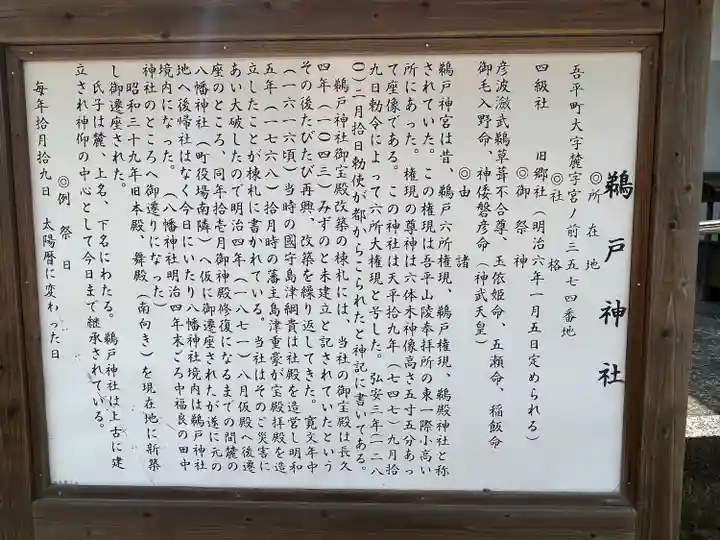 鵜戸神社
◎所在地
吾平町大字麓字宮ノ前三五七四番地
◎社格
四級社 旧郷社(明治六年一月五日定められる)
◎御祭神
彦波瀲武鵜草葺不合尊、玉依姫命、五瀬命、稲飯命
御毛入野命、神倭磐彦命(神武天皇)
◎由諸
鵜戸神宮は昔、鵜戸六所権現、鵜戸権現、鵜殿神社と称
されていた。この権現は吾平山陵奉拝所の東一際小高い
所にあった。権現の尊神は六体木神像高さ五寸五分あっ
て座像である。この神社は天平拾九年(七四七)九月拾
九日勅令によって六所大権現と号した。弘安三年(一二八
〇)二月拾日勅使が都からこられたと神記に書いてある。
鵜戸神社御宝殿改築の棟札には、当社の御宝殿は長久
四年(一〇四三)みずのと未建立と記されていたという
その後たびたび再興、改築を繰り返してきた。寛文年中
(一六一六頃)当時の國守島津綱貴は社殿を造営し明和
五年(一七六八)拾月時の藩主島津重豪が宝殿拝殿を造
立したことが棟札に書かれている。当社はそのご災害に
あい大破したので明治四年(一八七一)八月仮殿へ後遷
座のところ、同年拾壱月御神殿修復になるまでの間麓の
八幡神社(町役場南隣)へ仮に御遷座されたが遂に元の
地へ後帰社はなく今日にいたり八幡神社境内は鵜戸神社
境内になった。(八幡神社明治四年末ごろ中福良の田中
神社のところへ御遷りになった)
昭和三十九年旧本殿、舞殿(南向き)を現在地に新築
し御遷座された。
氏子は麓、上名、下名にわたる。鵜戸神社は上古に建
立され神仰の中心として今日まで継承されている。
◎例祭日
毎年拾月拾九日 太陽暦に変わった日